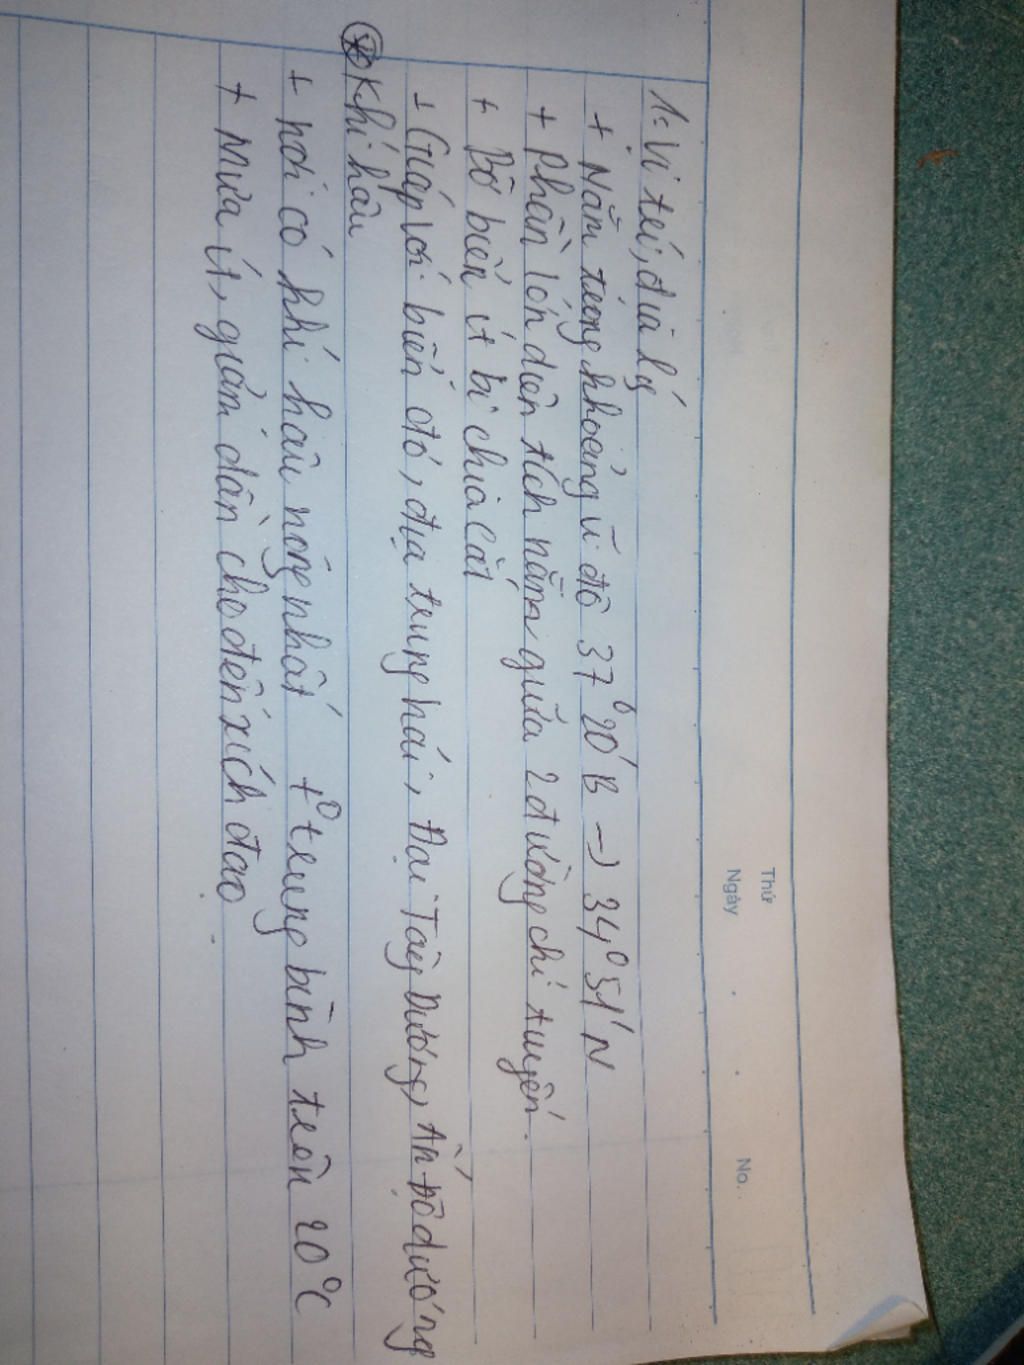 Thứ
Ngày
No.
1: Vị trí, địa lý
+ Nằm trong khoảng vĩ độ 37°20'B -> 34°51'N
+ Phần lớn diện tích nằm giữa 2 đường chí tuyến.
+ Bờ biển ít bị chia cắt
+ Giáp với biển đỏ, địa trung hải, Đại Tây Dương, Ấn Độ dương
* Khí hậu
+ nơi có khí hậu nóng nhất t° trung bình trên 20°C
+ Mưa ít, giảm dần cho đến xích đạo